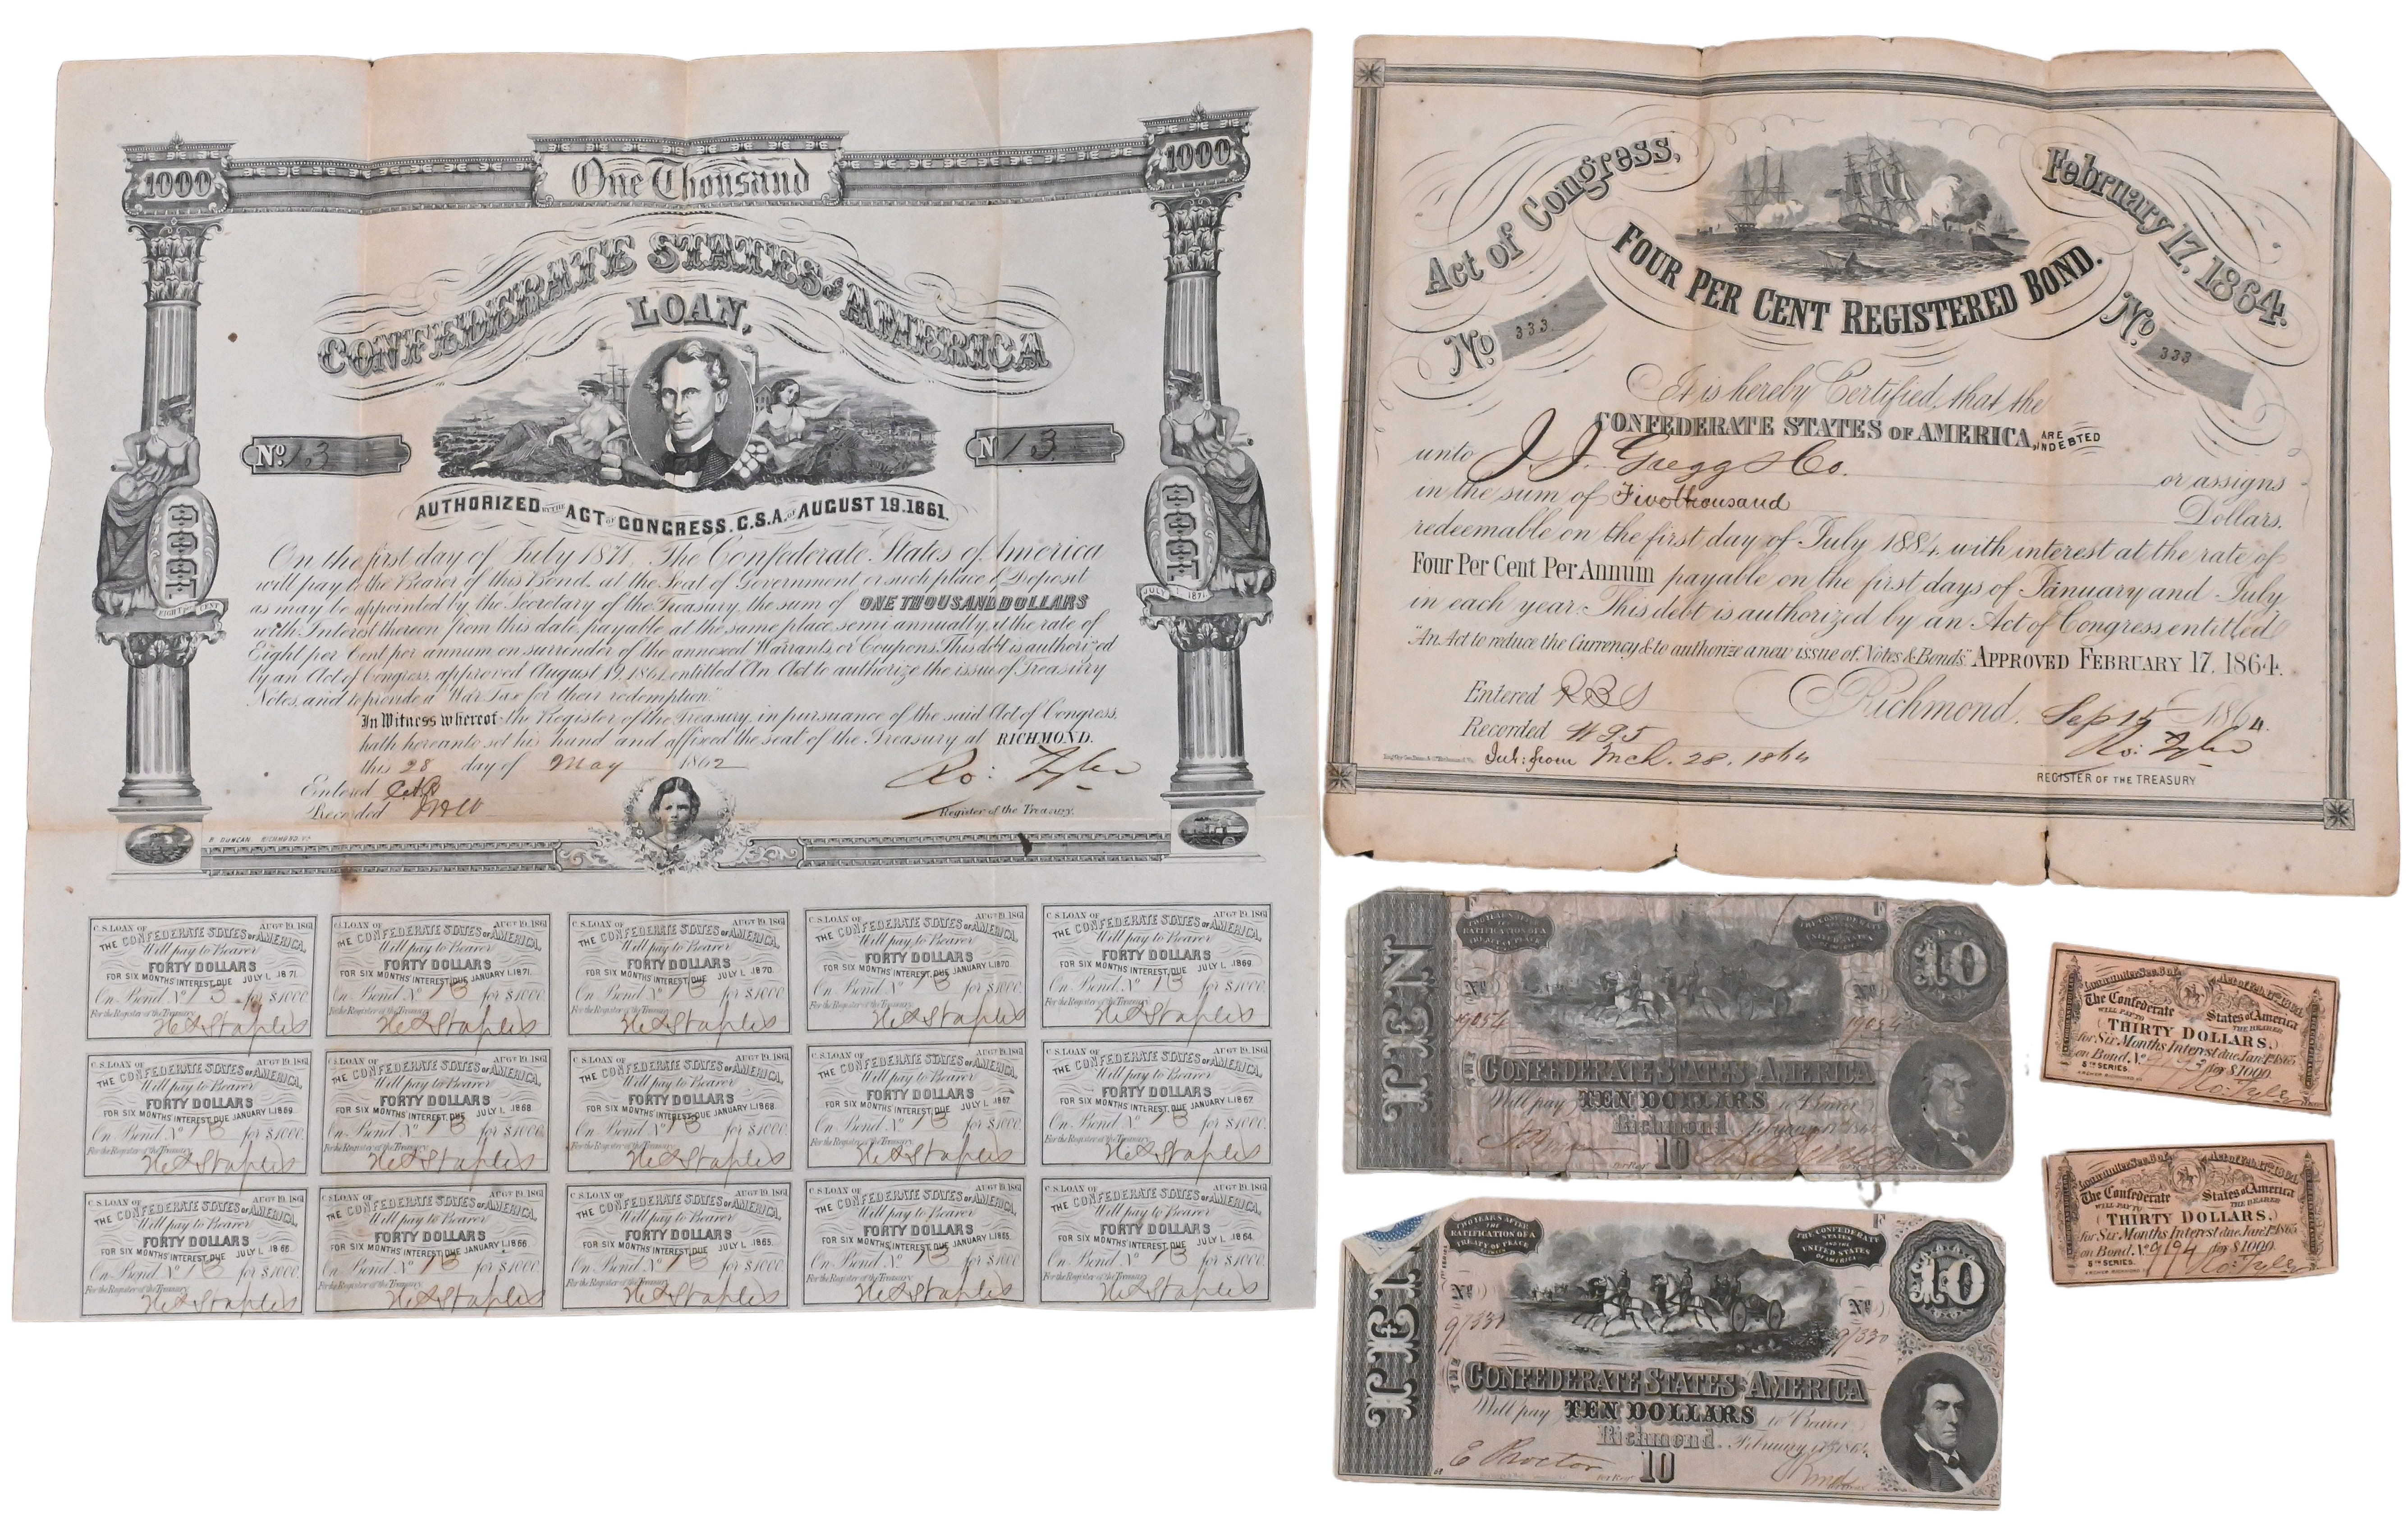 One Thousand
1000
1000
CONFEDERATE STATES OF AMERICA
LOAN,
No. 13
N 13
AUTHORIZED BY THE ACT OF CONGRESS. C.S.A. OF AUGUST 19. 1861.
1000
1000
EIGHT PER CENT
JULY 1 1871
On the first day of July 1871, The Confederate States of America
will pay to the Bearer of this Bond, at the Seat of Government or such place of Deposit
as may be appointed by the Secretary of the Treasury, the sum of ONE THOUSAND DOLLARS
with Interest thereon from this date, payable at the same place, semi annually, at the rate of
Eight per Cent per annum on surrender of the annexed Warrants or Coupons. This debt is authorized
by an Act of Congress, approved August 19, 1861, entitled "An Act to authorize the issue of Treasury
Notes, and to provide a War Tax for their redemption."
In Witness whereof the Register of the Treasury, in pursuance of the said Act of Congress,
hath hereunto set his hand and affixed the seal of the Treasury at RICHMOND.
this 28 day of May 1862
Ro: Tyler
Entered
Recorded
Register of the Treasury.
R DUNCAN RICHMOND, VA
C.S. LOAN OF AUGT 19. 1861
THE CONFEDERATE STATES OF AMERICA,
Will pay to Bearer
FORTY DOLLARS
FOR SIX MONTHS INTEREST, DUE JULY 1. 1871.
On Bond No 13 for $1000.
For the Register of the Treasury.
H L Staples
C.S. LOAN OF AUGT 19. 1861
THE CONFEDERATE STATES OF AMERICA,
Will pay to Bearer
FORTY DOLLARS
FOR SIX MONTHS INTEREST, DUE JANUARY 1. 1871.
On Bond No 13 for $1000.
For the Register of the Treasury.
H L Staples
C.S. LOAN OF AUGT 19. 1861
THE CONFEDERATE STATES OF AMERICA,
Will pay to Bearer
FORTY DOLLARS
FOR SIX MONTHS INTEREST, DUE JULY 1. 1870.
On Bond No 13 for $1000.
For the Register of the Treasury.
H L Staples
C.S. LOAN OF AUGT 19. 1861
THE CONFEDERATE STATES OF AMERICA,
Will pay to Bearer
FORTY DOLLARS
FOR SIX MONTHS INTEREST, DUE JANUARY 1. 1870.
On Bond No 13 for $1000.
For the Register of the Treasury.
H L Staples
C.S. LOAN OF AUGT 19. 1861
THE CONFEDERATE STATES OF AMERICA,
Will pay to Bearer
FORTY DOLLARS
FOR SIX MONTHS INTEREST, DUE JULY 1. 1869.
On Bond No 13 for $1000.
For the Register of the Treasury.
H L Staples
C.S. LOAN OF AUGT 19. 1861
THE CONFEDERATE STATES OF AMERICA,
Will pay to Bearer
FORTY DOLLARS
FOR SIX MONTHS INTEREST, DUE JANUARY 1. 1869.
On Bond No 13 for $1000.
For the Register of the Treasury.
H L Staples
C.S. LOAN OF AUGT 19. 1861
THE CONFEDERATE STATES OF AMERICA,
Will pay to Bearer
FORTY DOLLARS
FOR SIX MONTHS INTEREST, DUE JULY 1. 1868.
On Bond No 13 for $1000.
For the Register of the Treasury.
H L Staples
C.S. LOAN OF AUGT 19. 1861
THE CONFEDERATE STATES OF AMERICA,
Will pay to Bearer
FORTY DOLLARS
FOR SIX MONTHS INTEREST, DUE JANUARY 1. 1868.
On Bond No 13 for $1000.
For the Register of the Treasury.
H L Staples
C.S. LOAN OF AUGT 19. 1861
THE CONFEDERATE STATES OF AMERICA,
Will pay to Bearer
FORTY DOLLARS
FOR SIX MONTHS INTEREST, DUE JULY 1. 1867.
On Bond No 13 for $1000.
For the Register of the Treasury.
H L Staples
C.S. LOAN OF AUGT 19. 1861
THE CONFEDERATE STATES OF AMERICA,
Will pay to Bearer
FORTY DOLLARS
FOR SIX MONTHS INTEREST, DUE JANUARY 1. 1867.
On Bond No 13 for $1000.
For the Register of the Treasury.
H L Staples
C.S. LOAN OF AUGT 19. 1861
THE CONFEDERATE STATES OF AMERICA,
Will pay to Bearer
FORTY DOLLARS
FOR SIX MONTHS INTEREST, DUE JULY 1. 1866.
On Bond No 13 for $1000.
For the Register of the Treasury.
H L Staples
C.S. LOAN OF AUGT 19. 1861
THE CONFEDERATE STATES OF AMERICA,
Will pay to Bearer
FORTY DOLLARS
FOR SIX MONTHS INTEREST, DUE JANUARY 1. 1866.
On Bond No 13 for $1000.
For the Register of the Treasury.
H L Staples
C.S. LOAN OF AUGT 19. 1861
THE CONFEDERATE STATES OF AMERICA,
Will pay to Bearer
FORTY DOLLARS
FOR SIX MONTHS INTEREST, DUE JULY 1. 1865.
On Bond No 13 for $1000.
For the Register of the Treasury.
H L Staples
C.S. LOAN OF AUGT 19. 1861
THE CONFEDERATE STATES OF AMERICA,
Will pay to Bearer
FORTY DOLLARS
FOR SIX MONTHS INTEREST, DUE JANUARY 1. 1865.
On Bond No 13 for $1000.
For the Register of the Treasury.
H L Staples
C.S. LOAN OF AUGT 19. 1861
THE CONFEDERATE STATES OF AMERICA,
Will pay to Bearer
FORTY DOLLARS
FOR SIX MONTHS INTEREST, DUE JULY 1. 1864.
On Bond No 13 for $1000.
For the Register of the Treasury.
H L Staples
Act of Congress, February 17, 1864.
FOUR PER CENT REGISTERED BOND.
No. 333.
No. 333
It is hereby Certified, that the
CONFEDERATE STATES OF AMERICA, ARE INDEBTED
unto J. J. Gregg & Co. or assigns
in the sum of Five thousand Dollars.
redeemable on the first day of July 1884, with interest at the rate of
Four Per Cent Per Annum payable on the first days of January and July
in each year. This debt is authorized by an Act of Congress entitled
"An Act to reduce the Currency & to authorize a new issue of Notes & Bonds." APPROVED FEBRUARY 17. 1864.
Entered RBS
Richmond, Sep 15 1864.
Recorded
Ro: Tyler
Int: from Mch. 28, 1864
REGISTER OF THE TREASURY
TEN
F
F
TWO YEARS AFTER
THE
RATIFICATION OF A
TREATY OF PEACE
10
No
No
19054
19054
THE CONFEDERATE STATES OF AMERICA
Will pay TEN DOLLARS to Bearer
Richmond February 17th 1864
10
TEN
F
TWO YEARS AFTER
THE
RATIFICATION OF A
TREATY OF PEACE
BETWEEN
THE CONFEDERATE
STATES
AND THE
UNITED STATES
OF AMERICA
10
No
No
91330
THE CONFEDERATE STATES OF AMERICA
Will pay TEN DOLLARS to Bearer
Richmond. February 17th 1864.
E Proctor
for Regr
10
Loan under Sec. 6 of Act of Feb. 17th, 1864.
The Confederate States of America
WILL PAY TO THE BEARER
THIRTY DOLLARS,
for Six Months Interest due Jany. 1st 1865
on Bond. No. for $1000.
8TH SERIES.
Ro: Tyler
Loan under Sec. 6 of Act of Feb. 17th, 1864.
The Confederate States of America
WILL PAY TO THE BEARER
THIRTY DOLLARS,
for Six Months Interest due Jany. 1st 1865
on Bond. No. 9194 for $1000.
8TH SERIES.
Ro: Tyler